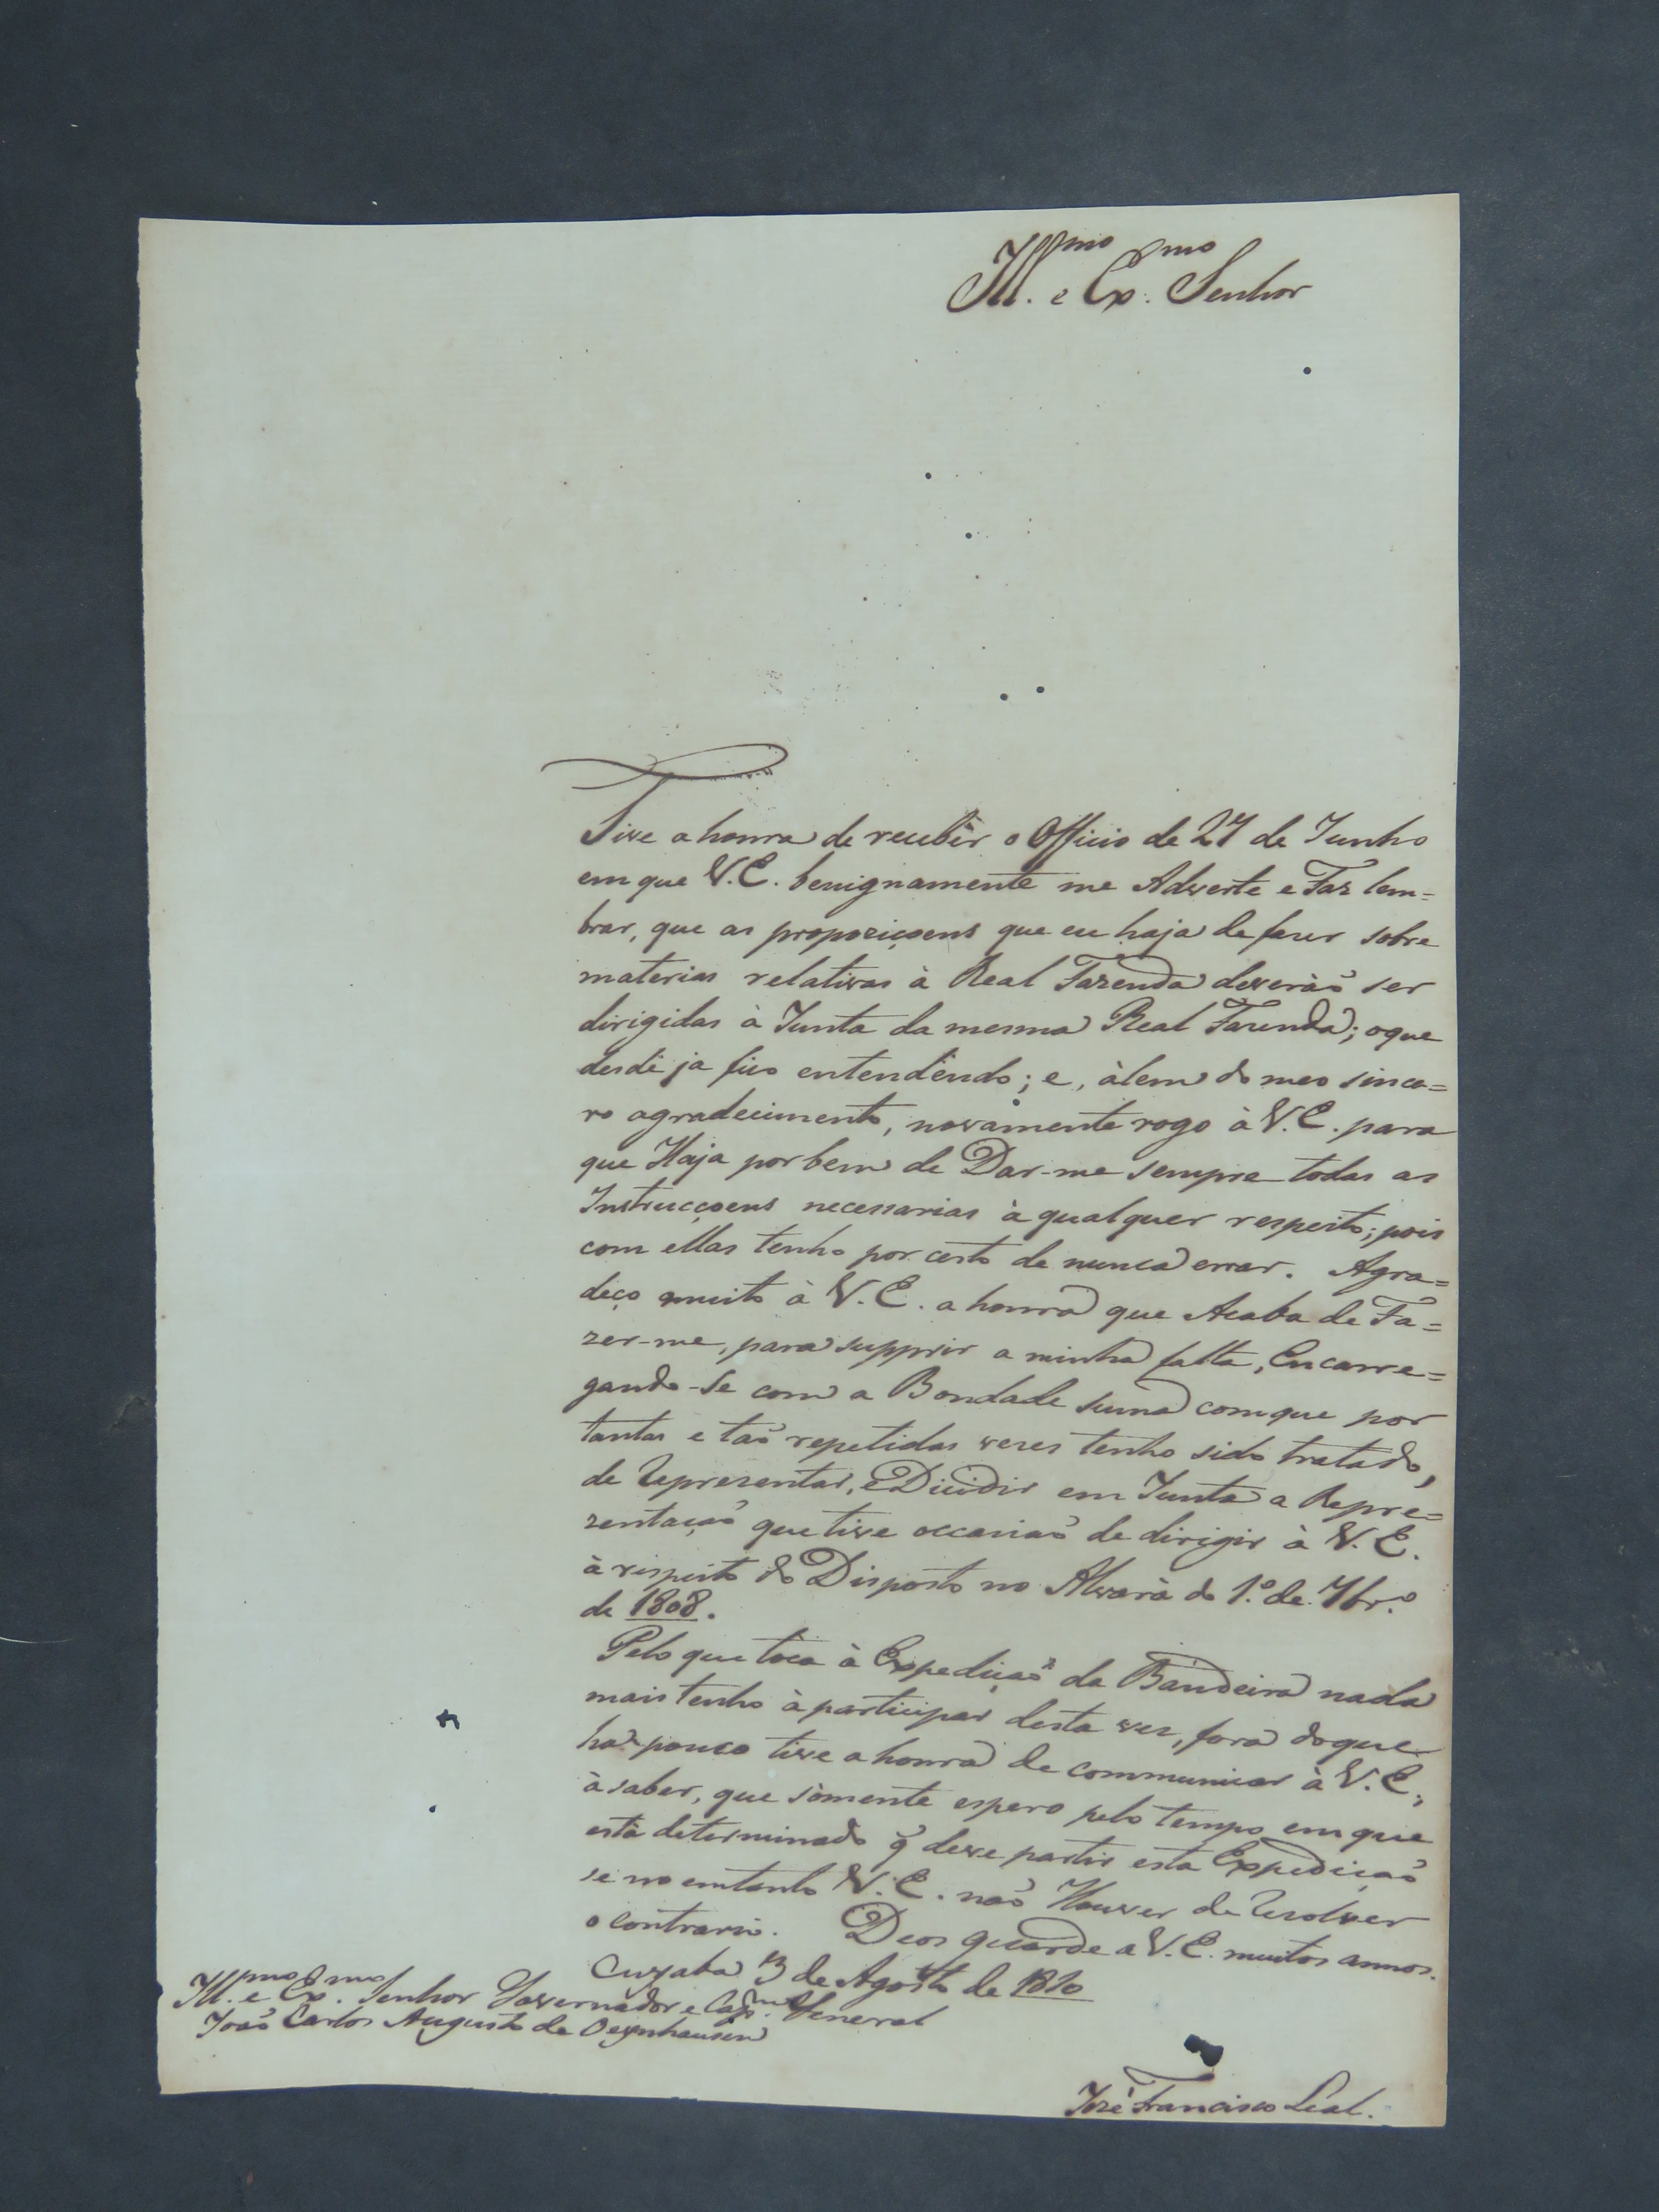 Ill.mo e Ex.mo Senhor
Tive a honra de recebêr o Officio de 27 de Junho
em que V.E. benignamente me Adverte e Faz lem=
brar, que as propoziçoens que eu haja de fazer sobre
materias relativas à Real Fazenda deveràõ ser
dirigidas à Junta da mesma Real Fazenda; oque
desde ja fico entendendo; e, àlem do meo since=
ro agradecimento, novamente rogo à V.E. para
que Haja por bem de Dar-me sempre todas as
Instrucçoens necessarias à qualquer respeito; pois
com ellas tenho por certo de nunca errar. Agra=
deço muito à V.E. a honra que Acaba de Fa=
zer-me, para supprir a minha falta, Encarre=
gando-Se com a Bondade suma com que por
tantas e taõ repetidas vezes tenho sido tratado,
de Reprezentar, e Dicidir em Junta a Repre=
zentaçaõ que tive occasiaõ de dirigir à V.E.
à respeito do Disposto no Alvarà do 1.º de 7br.º
de 1808.
Pelo que toca à Expediçaõ da Bandeira nada
mais tenho à participar desta vez, fora do que
ha pouco tive a honra de communicar à V.E.,
à saber, que sòmente espero pelo tempo em que
està determinado q̃ deve partir esta Expediçaõ
se no emtanto V.E. naõ Houver de Rezolver
o contrario. Deos guarde a V.E. muitos annos.
Cuyaba 13 de Agosto de 1810
Ill.mo e Ex.mo Senhor Governador e Cap.m General
Joaõ Carlos Augusto de Oeynhausen
Jozé Francisco Leal.